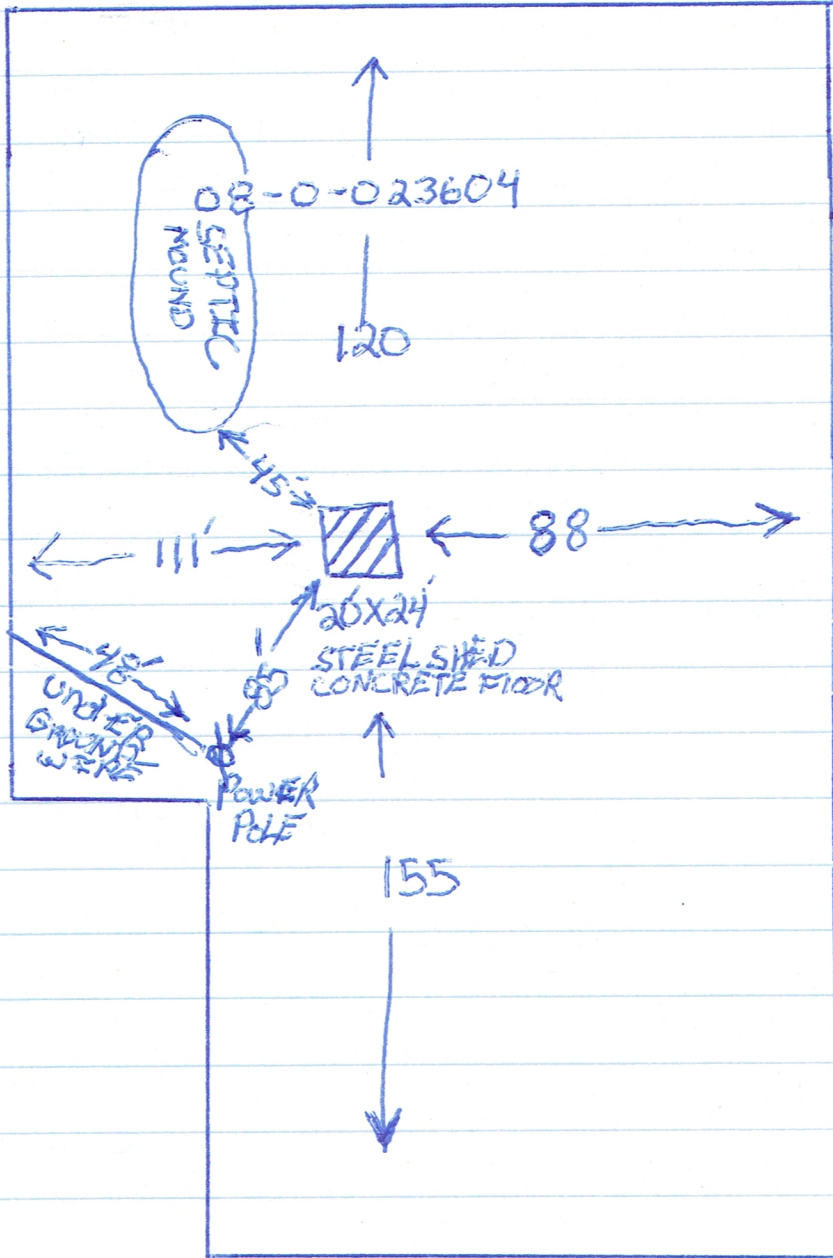 08-0-023604
SEPTIC
MOUND
120
45'
111'
88
20'X24'
STEEL SHED
CONCRETE FLOOR
48'
UNDER
GROUND
WIRE
POWER
POLE
155